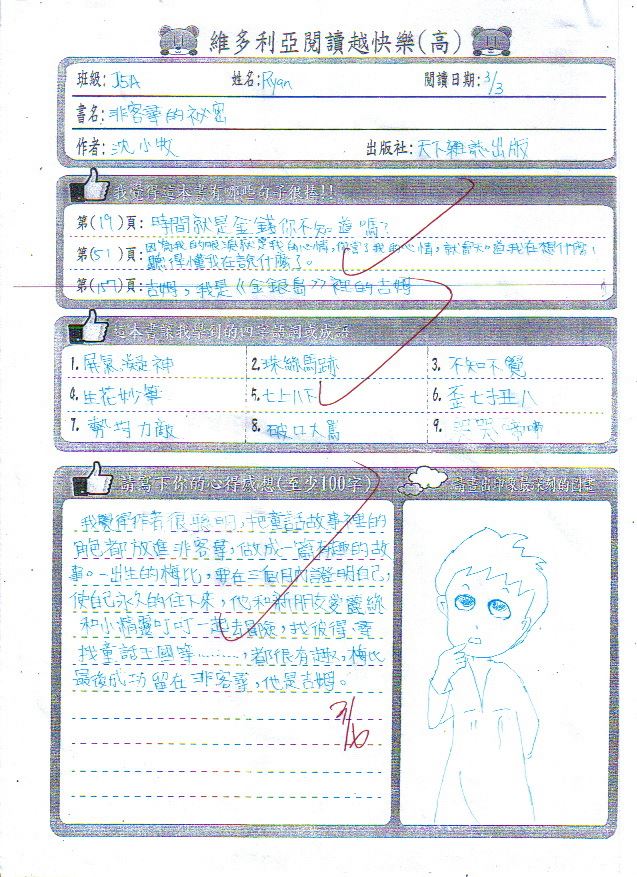 維多利亞閱讀越快樂(高)
班級: J5A 姓名: Ryan 閱讀日期: 3/3
書名: 非客寧的祕密
作者: 沈小牧 出版社: 天下雜誌出版
我覺得這本書有哪些句子很棒!!
第(19)頁: 時間就是金錢你不知道嗎?
第(51)頁: 因為我的眼淚就是我的心情,你害了我的心情,就會知道我在想什麼,
聽得懂我在說什麼了。
第(157)頁: 吉姆,我是《金銀島》裡的吉姆
這本書讓我學到的四字語詞或成語
1. 屏氣凝神 2. 珠絲馬跡 3. 不知不覺
4. 生花妙筆 5. 七上八下 6. 歪七扭八
7. 勢均力敵 8. 破口大罵 9.
請寫下你的心得感想(至少100字) 請畫出印象最深刻的圖畫
我覺得作者很聰明,把童話故事裡的
角色都放進非客寧,做成一篇有趣的故
事。一出生的梅比,要在三個月內證明自己,
使自己永久的住下來,他和新朋友愛麗絲
和小精靈叮叮一起去冒險,找彼得、尋
找童話王國等………,都很有趣,梅比
最後成功留在非客寧,他是吉姆。
3/16